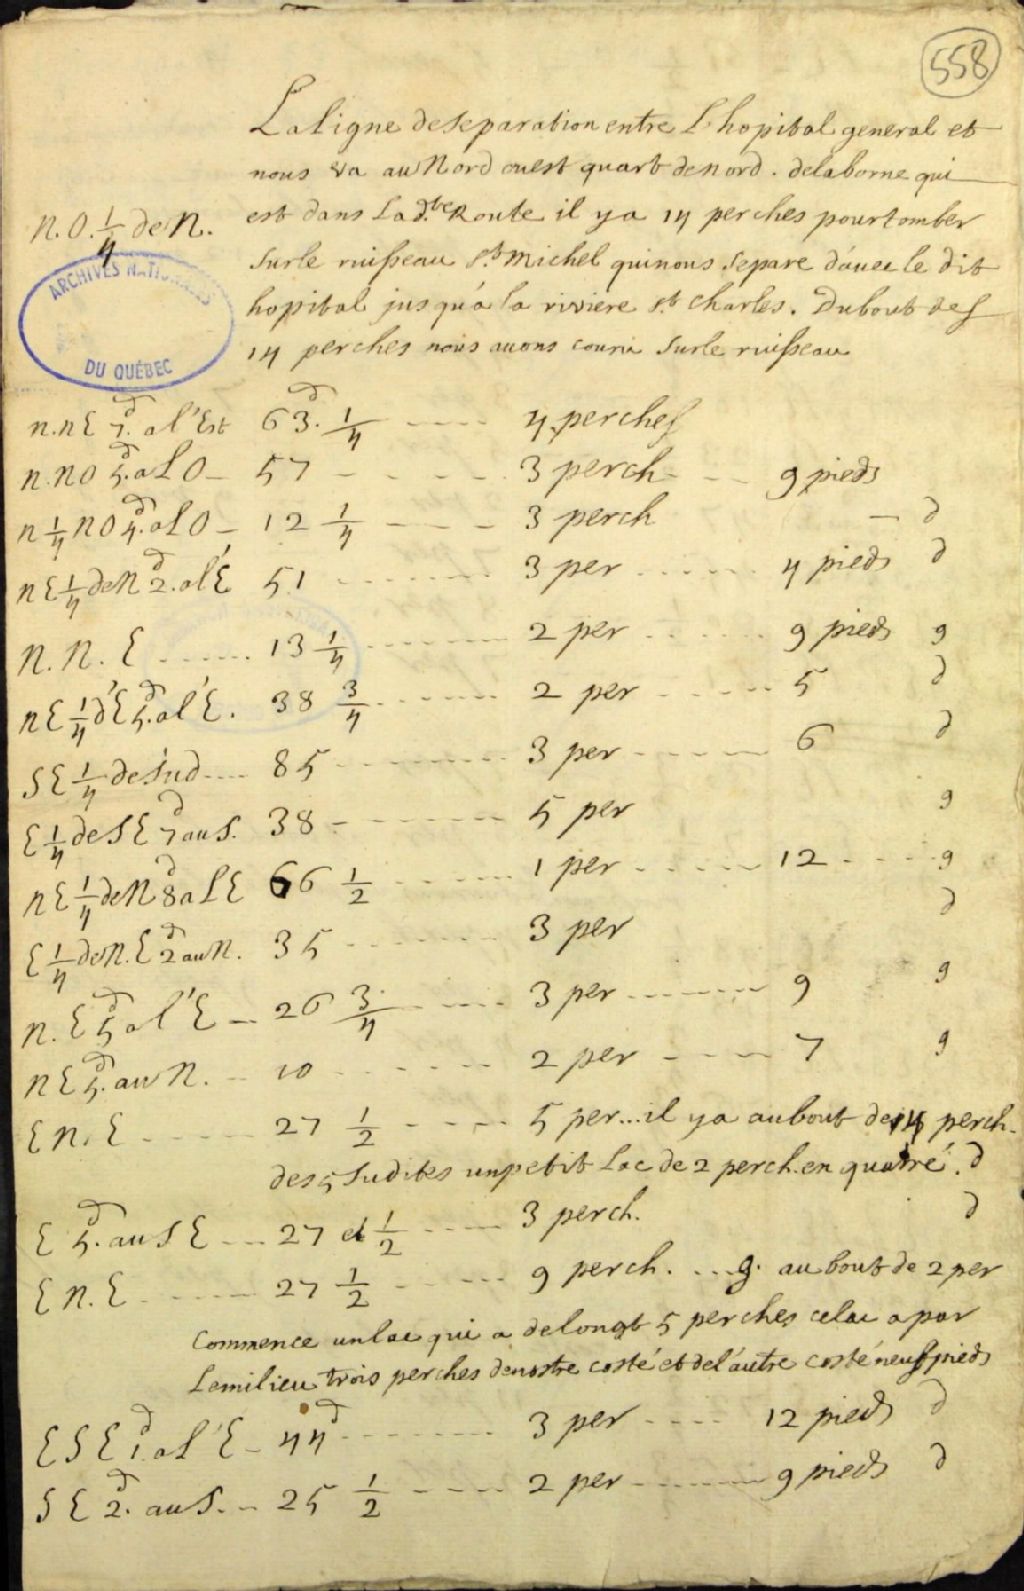 558
La ligne de separation entre L'hopital general et
nous va au Nord ouest quart de nord. de la borne qui
est dans La d.te Route il y a 14 perches pour tomber
N.O. 1/4 de N.
sur le ruisseau s.t Michel qui nous separe d'avec le dit
hopital jusqu'a la riviere s.t Charles. Du bout des
14 perches nous avons couru sur le ruisseau
ARCHIVES NATIONALES
DU QUÉBEC
n.nE 7.d a l'Est 63.d 1/4 ---- 4 perches
n.nO 5.d a L O - 57 ---- 3 perch -- 9 pieds
n 1/4 nO 4.d a L O - 12 1/4 ---- 3 perch — d
nE 1/4 de N 2.d a l'É 51 ---- 3 per ---- 4 pieds d
N.N.E ---- 13 1/4 ---- 2 per ---- 9 pieds g
nE 1/4 d'E 5.d a l'É. 38 3/4 ---- 2 per ---- 5 d
SE 1/4 de sud ---- 85 ---- 3 per ---- 6 d
E 1/4 de SE 7d au S. 38 ---- 5 per g
nE 1/4 de N 8d a L E 66 1/2 ---- 1 per ---- 12 ---- g
E 1/4 de N.E 2d au N. 35 ---- 3 per d
n.E 5d a l'E -- 26 3/4 ---- 3 per ---- 9 g
nE 5.d au N. -- 10 ---- 2 per ---- 7 g
E N.E ---- 27 1/2 ---- 5 per... il y a au bout de 14 perch.
des 5 sudites un petit Lac de 2 perch. en quarré. d
E 5.d au S E --- 27 et 1/2 ---- 3 perch. d
E N.E ---- 27 1/2 ---- 9 perch. ... g. au bout de 2 per
Commence un lac qui a de longt 5 perches ce lac a par
Le milieu trois perches de nostre costé et de l'autre costé neuf pieds
E S E 1.d a L'E - 44d ---- 3 per ---- 12 pieds d
S E 2.d au S. -- 25 1/2 ---- 2 per ---- 9 pieds d